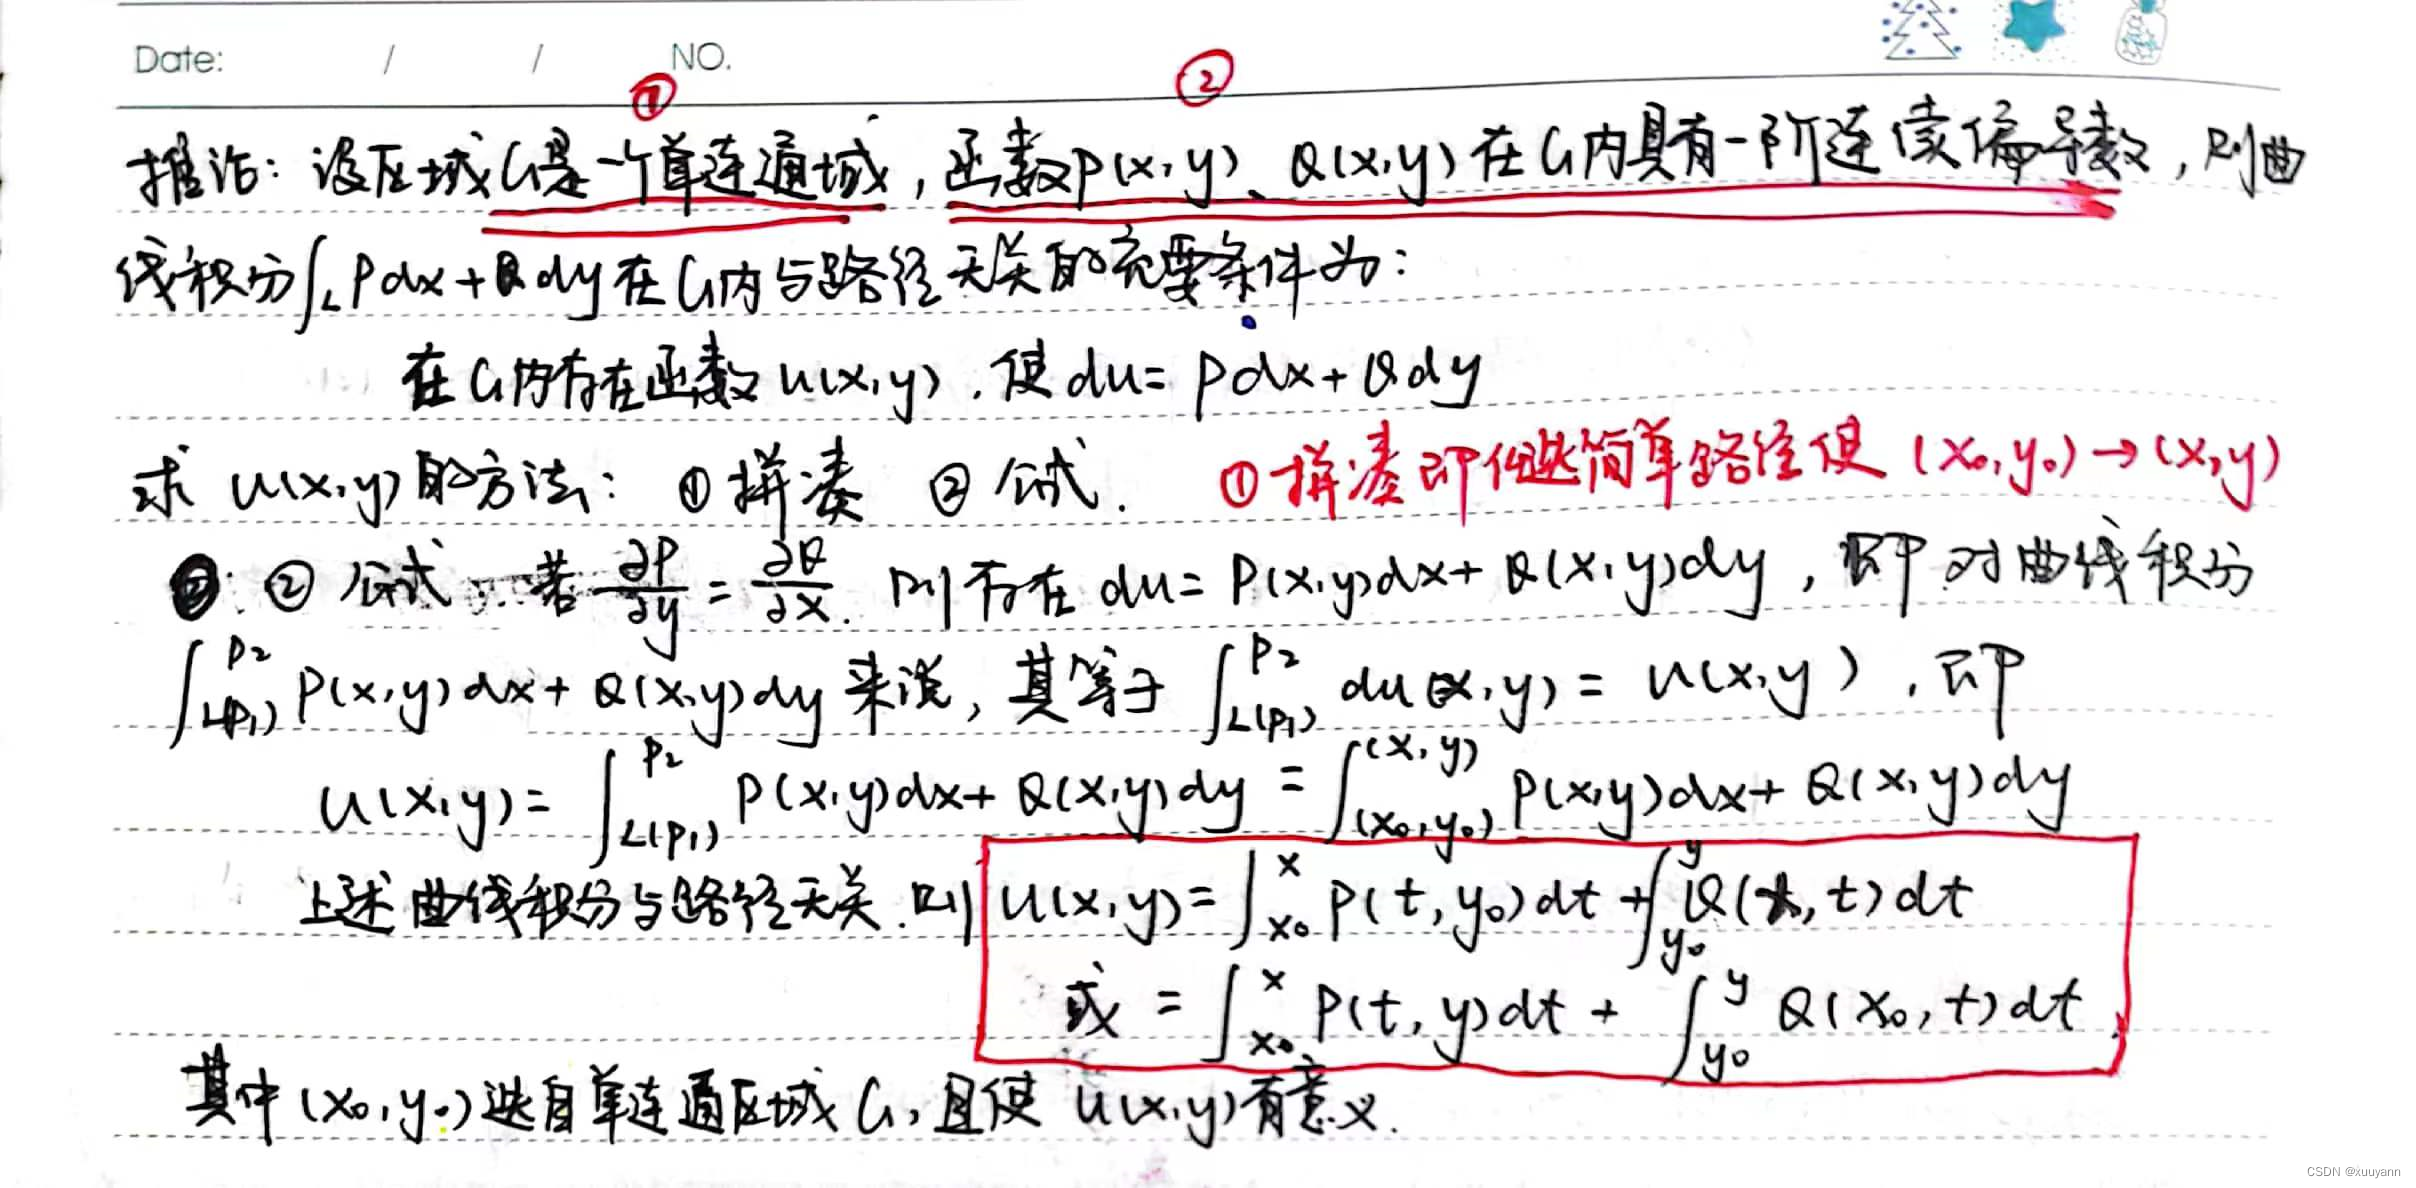 Date: / / NO.
① ②
推论：设区域G是一个单连通域，函数P(x,y)、Q(x,y)在G内具有一阶连续偏导数，则曲
线积分∫_L Pdx+Qdy在G内与路径无关的充要条件为：
在G内存在函数u(x,y)，使du=Pdx+Qdy
求u(x,y)的方法：①拼凑 ②公式. ①拼凑即任选简单路径使(x₀,y₀)→(x,y)
②公式：若∂P/∂y=∂Q/∂x. 则存在du=P(x,y)dx+Q(x,y)dy，即对曲线积分
∫_{L(P₁)}^{P₂} P(x,y)dx+Q(x,y)dy来说，其等于∫_{L(P₁)}^{P₂} du(x,y)=u(x,y)，即
u(x,y)=∫_{L(P₁)}^{P₂} P(x,y)dx+Q(x,y)dy=∫_{(x₀,y₀)}^{(x,y)} P(x,y)dx+Q(x,y)dy
上述曲线积分与路径无关.则 u(x,y)=∫_{x₀}^{x} P(t,y₀)dt+∫_{y₀}^{y} Q(x,t)dt
或 =∫_{x₀}^{x} P(t,y)dt+∫_{y₀}^{y} Q(x₀,t)dt
其中(x₀,y₀)选自单连通区域G，且使u(x,y)有意义.
CSDN @xuuyann